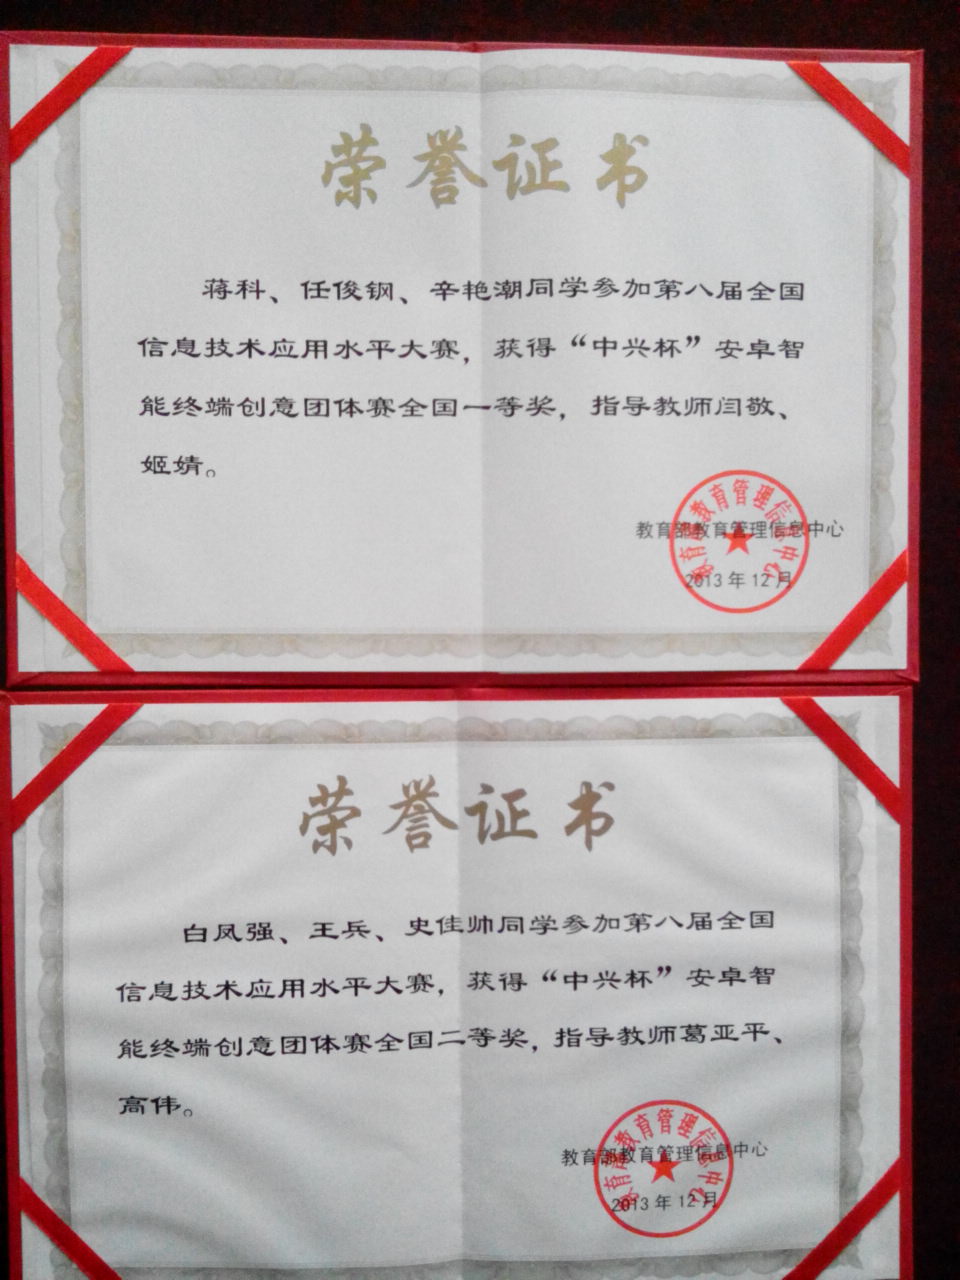 荣誉证书
蒋科、任俊钢、辛艳潮同学参加第八届全国
信息技术应用水平大赛，获得“中兴杯”安卓智
能终端创意团体赛全国一等奖，指导教师闫敬、
姬婧。
教育部教育管理信息中心
教育部教育管理信息中心
2013年12月
荣誉证书
白凤强、王兵、史佳帅同学参加第八届全国
信息技术应用水平大赛，获得“中兴杯”安卓智
能终端创意团体赛全国二等奖，指导教师葛亚平、
高伟。
教育部教育管理信息中心
教育部教育管理信息中心
2013年12月